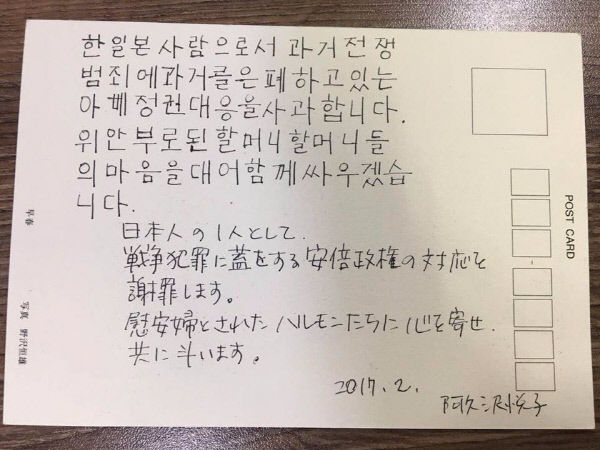 한일본사람으로서과거전쟁
범죄에과거를은폐하고있는
아베정권대응을사과합니다.
위안부로된할머니할머니들
의마음을대어함께싸우겠습
니다.
日本人の1人として.
戦争犯罪に蓋をする安倍政権の対応を
謝罪します。
慰安婦とされたハルモンたちに心を寄せ.
共に斗います。
2017.2.
阿久沢悦子
POST CARD
早春
写真 野沢恒雄